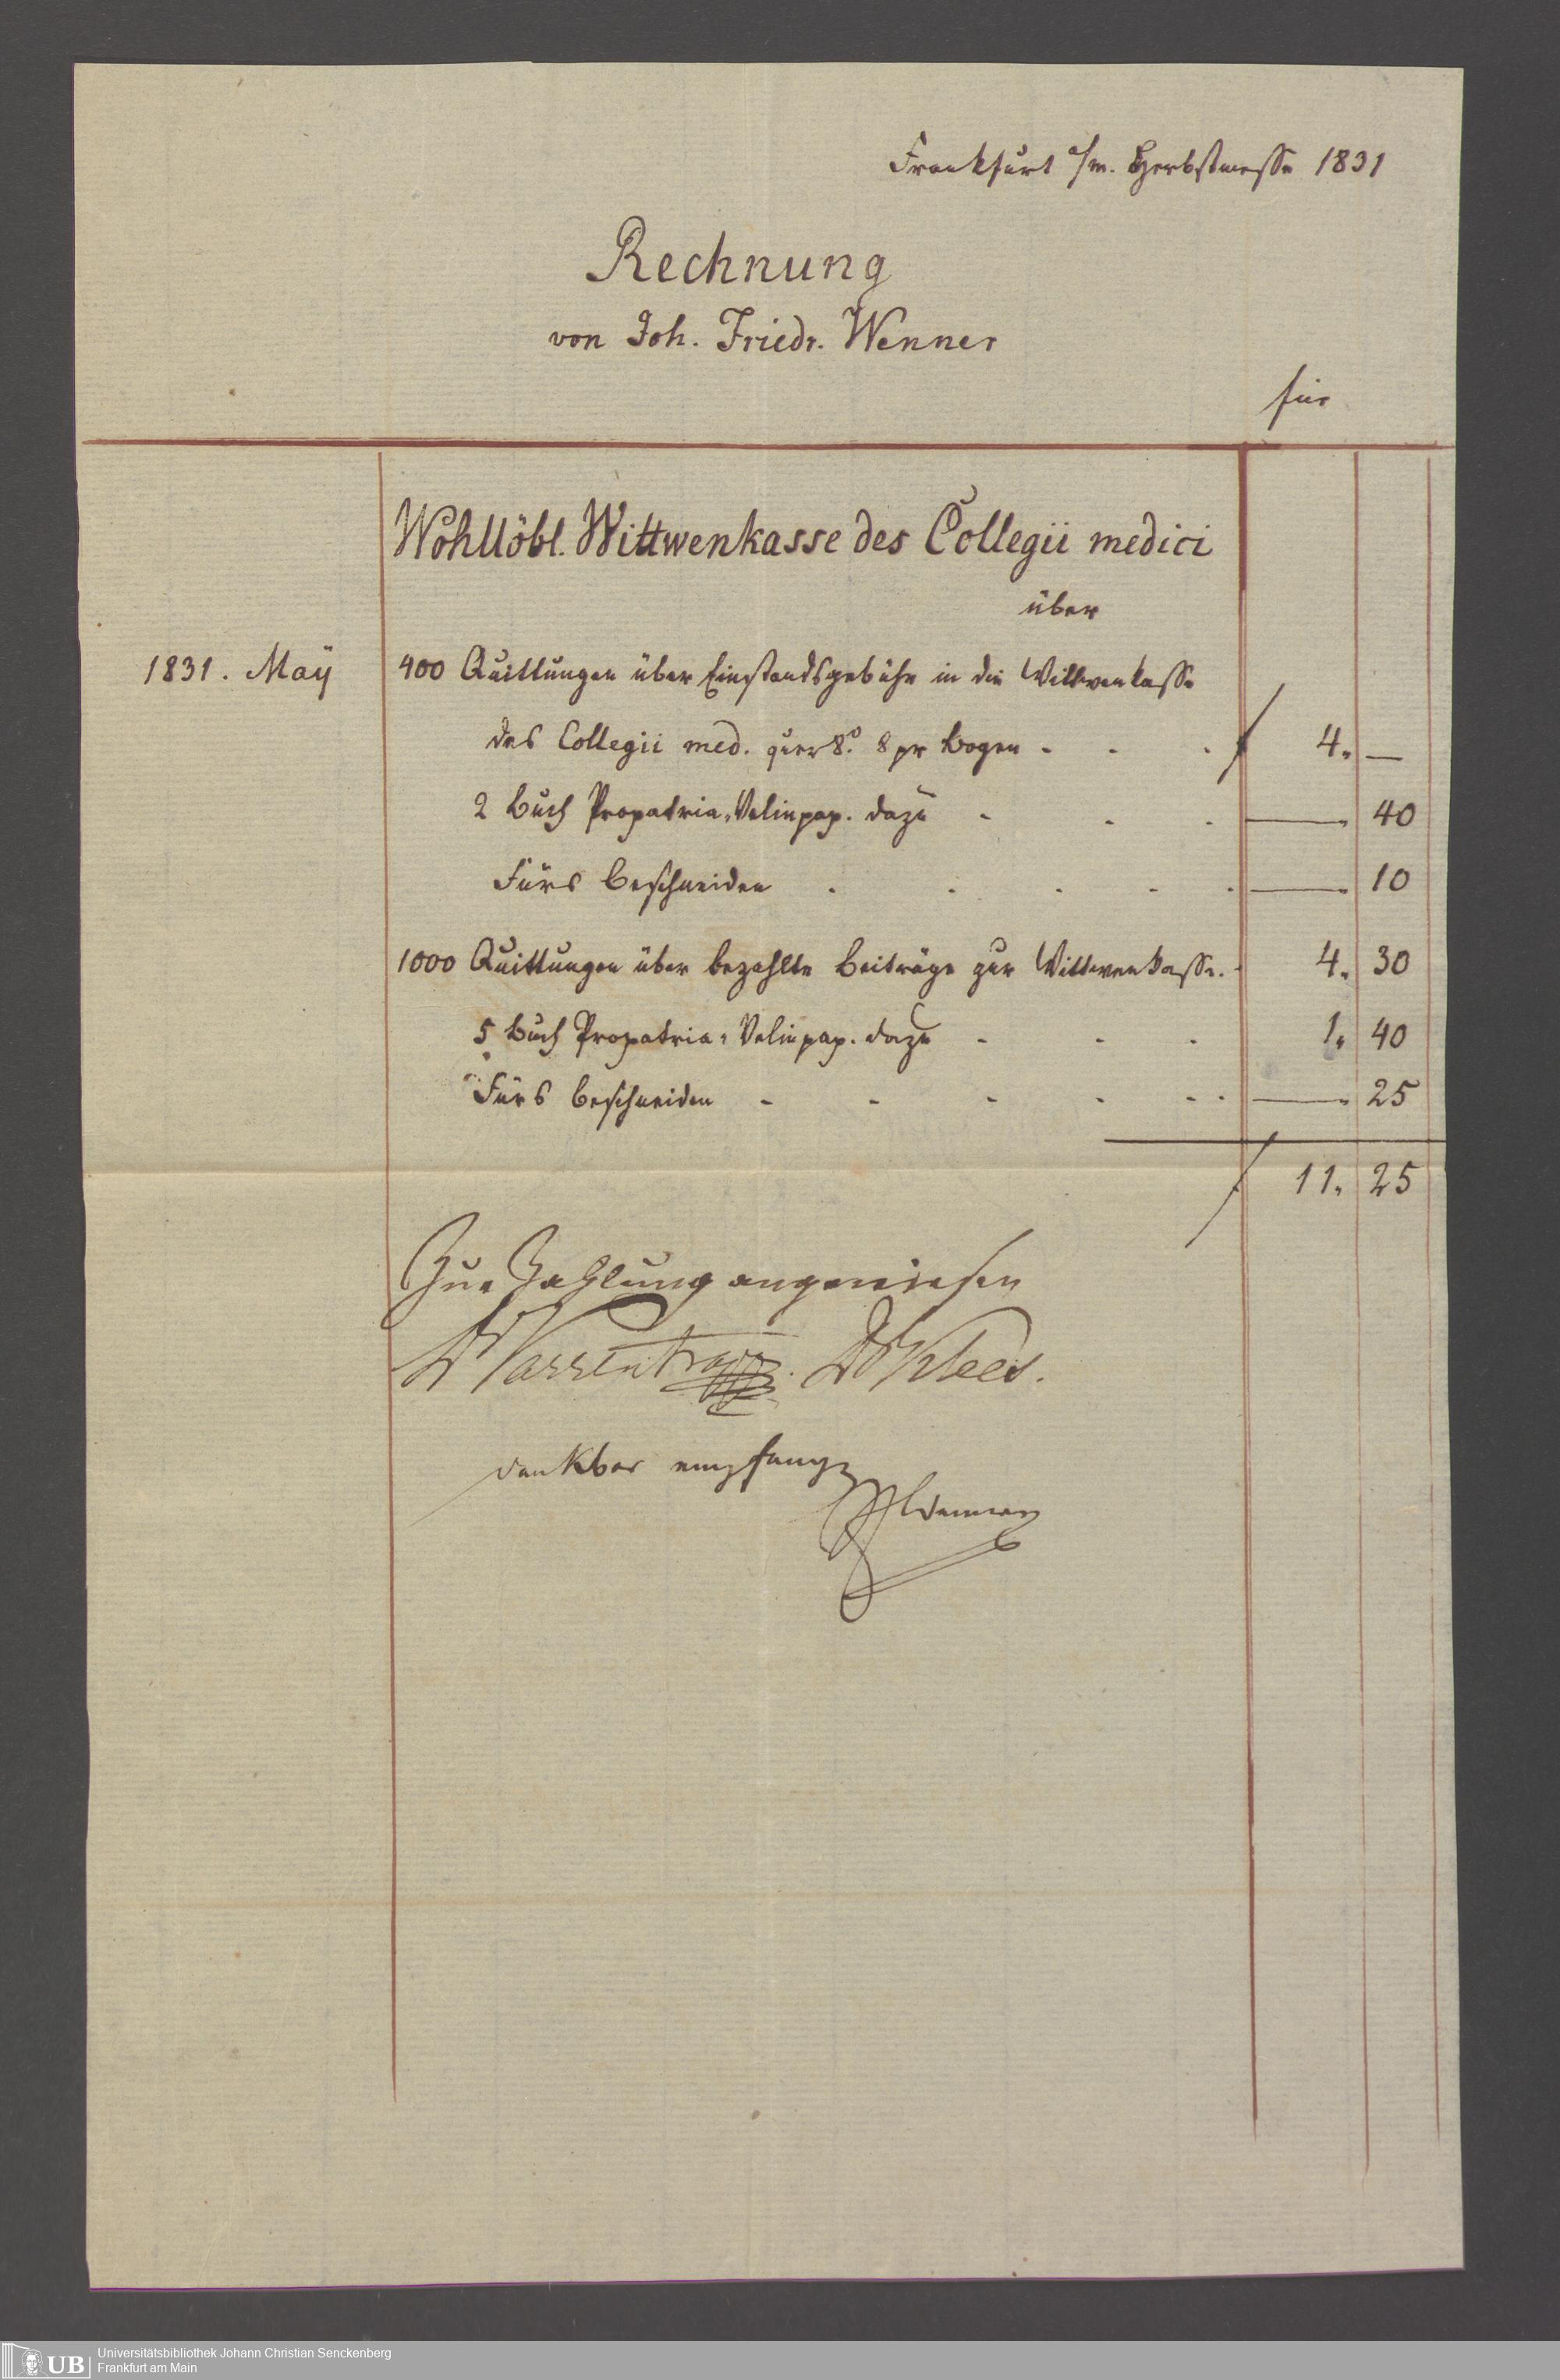 Frankfurt a/m. Herbstmesse 1831
Rechnung
von Joh. Friedr. Wenner
für
Wohllöbl. Wittwenkasse des Collegii medici
über
1831. Maÿ 400 Quittungen über Einstandsgebühr in die Wittwenkasse
des Collegii med. quer 8o. 8 pr Bogen - - - f 4. —
2 Buch Propatria-Velinpap. dazu - - - — 40
Fürs Beschneiden - - - - - — 10
1000 Quittungen über bezahlte Beiträge zur Wittwenkasse. - 4. 30
5 Buch Propatria-Velinpap. dazu - - - 1. 40
Fürs Beschneiden - - - - - - — 25
f 11. 25
Zur Zahlung angewiesen
Dr Varrentrapp. Dr Kloss.
dankbar empfang
JFWenner
UB Universitätsbibliothek Johann Christian Senckenberg
Frankfurt am Main